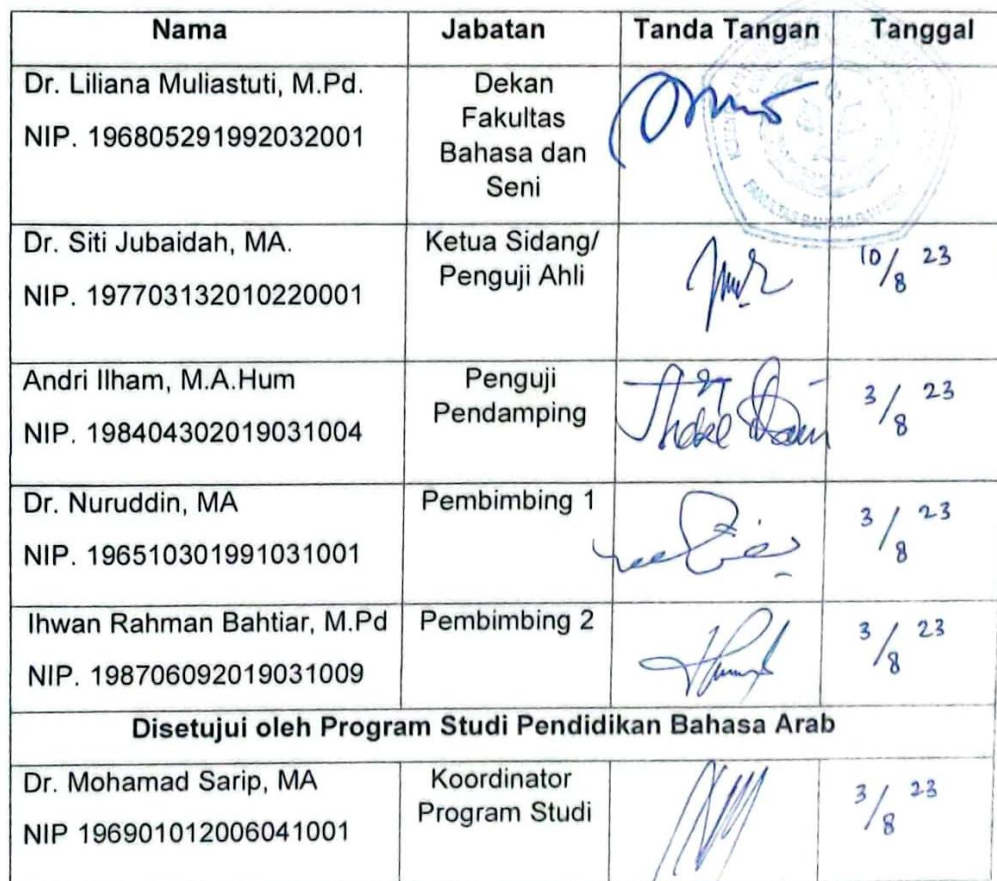 Nama Jabatan Tanda Tangan Tanggal
Dr. Liliana Muliastuti, M.Pd.
NIP. 196805291992032001
Dekan
Fakultas
Bahasa dan
Seni
Dr. Siti Jubaidah, MA.
NIP. 197703132010220001
Ketua Sidang/
Penguji Ahli
10/8 23
Andri Ilham, M.A.Hum
NIP. 198404302019031004
Penguji
Pendamping
3/8 23
Dr. Nuruddin, MA
NIP. 196510301991031001
Pembimbing 1
3/8 23
Ihwan Rahman Bahtiar, M.Pd
NIP. 198706092019031009
Pembimbing 2
3/8 23
Disetujui oleh Program Studi Pendidikan Bahasa Arab
Dr. Mohamad Sarip, MA
NIP 196901012006041001
Koordinator
Program Studi
3/8 23